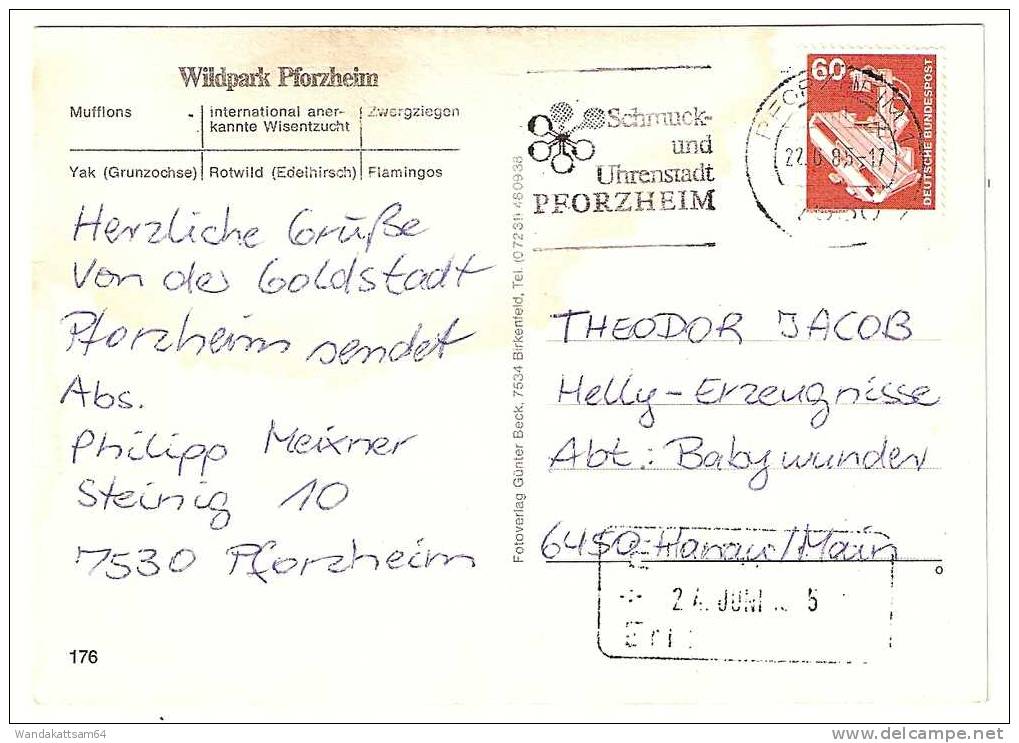 Wildpark Pforzheim
Mufflons
international aner-
kannte Wisentzucht
Zwergziegen
Yak (Grunzochse)
Rotwild (Edelhirsch)
Flamingos
Herzliche Grüße
Von der Goldstadt
Pforzheim sendet
Abs.
Philipp Meixner
Steinig 10
7530 Pforzheim
176
Fotoverlag Günter Beck, 7534 Birkenfeld, Tel. (0 72 31) 48 09 38
Schmuck-
und
Uhrenstadt
PFORZHEIM
PFORZHEIM
22.6.85-17
7530
60
DEUTSCHE BUNDESPOST
THEODOR JACOB
Helly-Erzeugnisse
Abt.: Babywunder
6450 Hanau/Main
24. JUNI 5
Wandakattsam64
www.delcampe.net